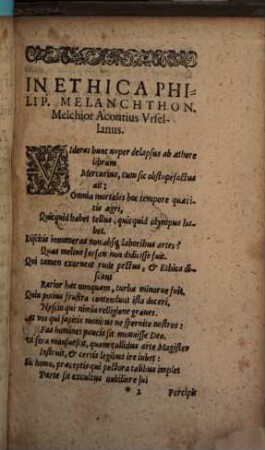 IN ETHICA PHI-
LIP. MELANCHTHON.
Melchior Acontius Vrsel-
lanus.
VIderat hunc nuper delapsus ab æthere
librum
Mercurius, tum sic obstupefactus
ait:
Omnia mortales hoc tempore quæri-
tis ægri,
Quicquid habet tellus, quicquid olympus ha-
bet.
Discitis innumeras non absq; laboribus artes?
Quas melius forsan non didicisse fuit.
Qui tamen exornent rude pectus, & Ethica di-
scant
Rarior hæc nunquam, turba minorue fuit.
Quin potius frustra contendunt ista doceri,
Nescio qui nimia religione graues.
At vos qui sapitis monitus ne spernite nostros:
Fas homines paucis sit monuisse Deo.
Vt fera mansuescit, quam callidus arte Magister
Instruit, & certis legibus ire iubet:
Sic homo, præceptis qui pectora talibus implet
Parte sit excultus nobiliore sui
* 2 Percipit